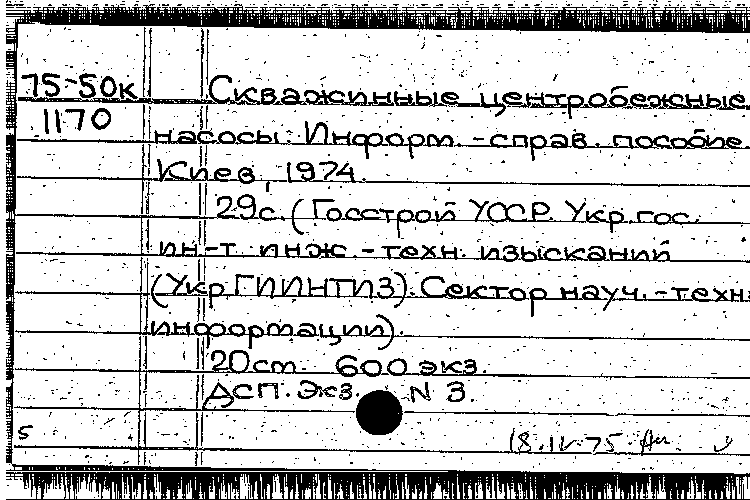 75-50к Скважинные центробежные
1170 насосы. Информ.-справ. пособие.
Киев, 1974.
29с. (Госстрой УССР. Укр.гос.
ин-т. инж.-техн. изысканий
(УкрГИИНТИЗ). Сектор науч.-техн.
информации).
20см. 600 экз.
ДСП. Экз. N 3.
5 18.IV.75.